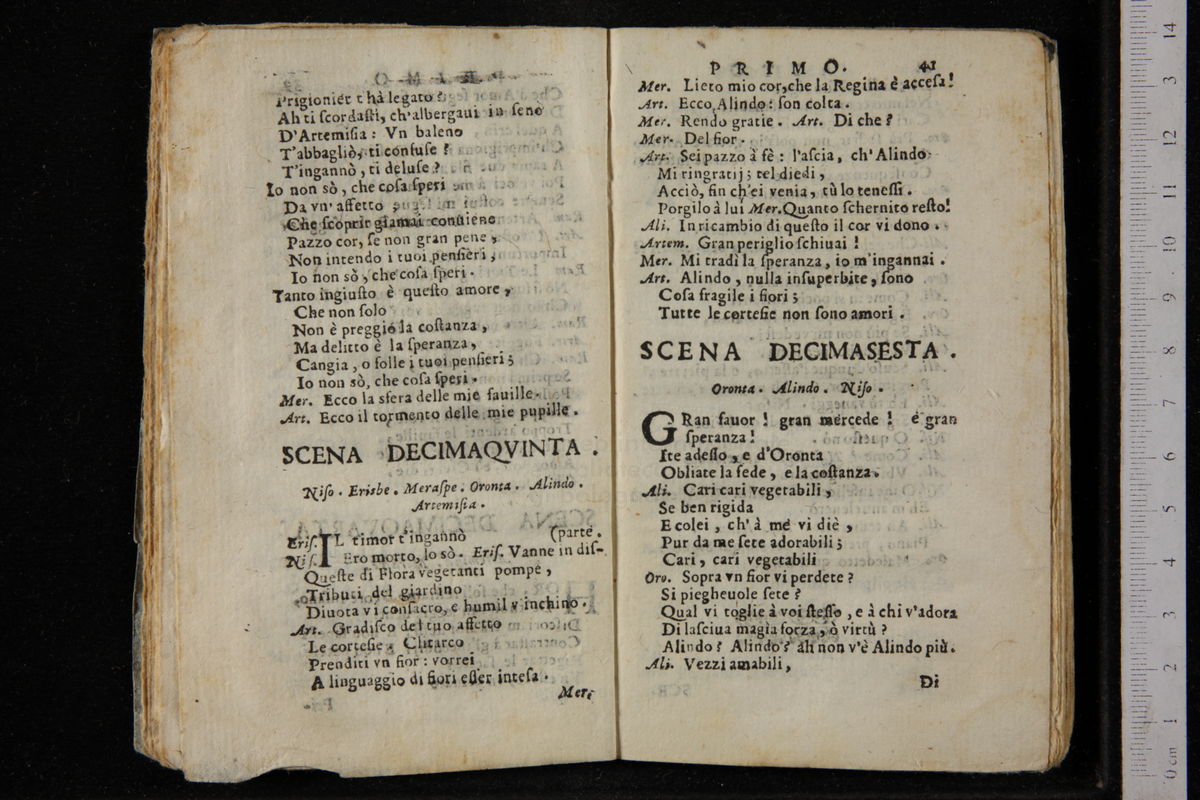 Prigionier t'hà legato?
Ah ti scordasti, ch'albergaui in senò
D'Artemisia: Vn baleno
T'abbagliò, ti confuse?
T'ingannò, ti deluse?
Io non sò, che cosa speri
Da vn' affetto
Che scoprir giamai conuiene
Pazzo cor, se non gran pene,
Non intendo i tuoi pensieri,
Io non sò, che cosa speri.
Tanto ingiusto è questo amore,
Che non solo
Non è preggio la costanza,
Ma delitto è la speranza,
Cangia, o folle i tuoi pensieri;
Io non sò, che cosa speri.
Mer. Ecco la sfera delle mie fauille.
Art. Ecco il tormento delle mie pupille.
SCENA DECIMAQVINTA.
Niso. Erisbe. Meraspe. Oronta. Alindo.
Artemisia.
Eris. IL timor t'ingannò (parte.
Nis. Ero morto, lo sò. Eris. Vanne in dis-
Queste di Flora vegetanti pompe,
Tributi del giardino
Diuota vi consacro, e humil v'inchino.
Art. Gradisco del tuo affetto
Le cortesie. Clitarco
Prenditi vn fior: vorrei
A linguaggio di fiori esser intesa.
Mer.
PRIMO. 41
Mer. Lieto mio cor, che la Regina è accesa!
Art. Ecco Alindo: son colta.
Mer. Rendo gratie. Art. Di che?
Mer. Del fior.
Art. Sei pazzo à fè: lascia, ch'Alindo
Mi ringratij; tel diedi,
Acciò, fin ch'ei venia, tù lo tenessi.
Porgilo à lui Mer. Quanto schernito resto!
Ali. In ricambio di questo il cor vi dono.
Artem. Gran periglio schiuai!
Mer. Mi tradì la speranza, io m'ingannai.
Art. Alindo, nulla insuperbite, sono
Cosa fragile i fiori;
Tutte le cortesie non sono amori.
SCENA DECIMASESTA.
Oronta. Alindo. Niso.
GRan fauor! gran mercede! é gran
speranza!
Ite adesso, e d'Oronta
Obliate la fede, e la costanza.
Ali. Cari cari vegetabili,
Se ben rigida
E colei, ch'à mé vi diè,
Pur da me sete adorabili;
Cari, cari vegetabili
Oro. Sopra vn fior vi perdete?
Si piegheuole sete?
Qual vi toglie à voi stesso, e à chi v'adora
Di lasciua magìa forza, ò virtù?
Alindo? Alindo? ah non v'è Alindo più.
Ali. Vezzi amabili,
Di
0 cm 1 2 3 4 5 6 7 8 9 10 11 12 13 14